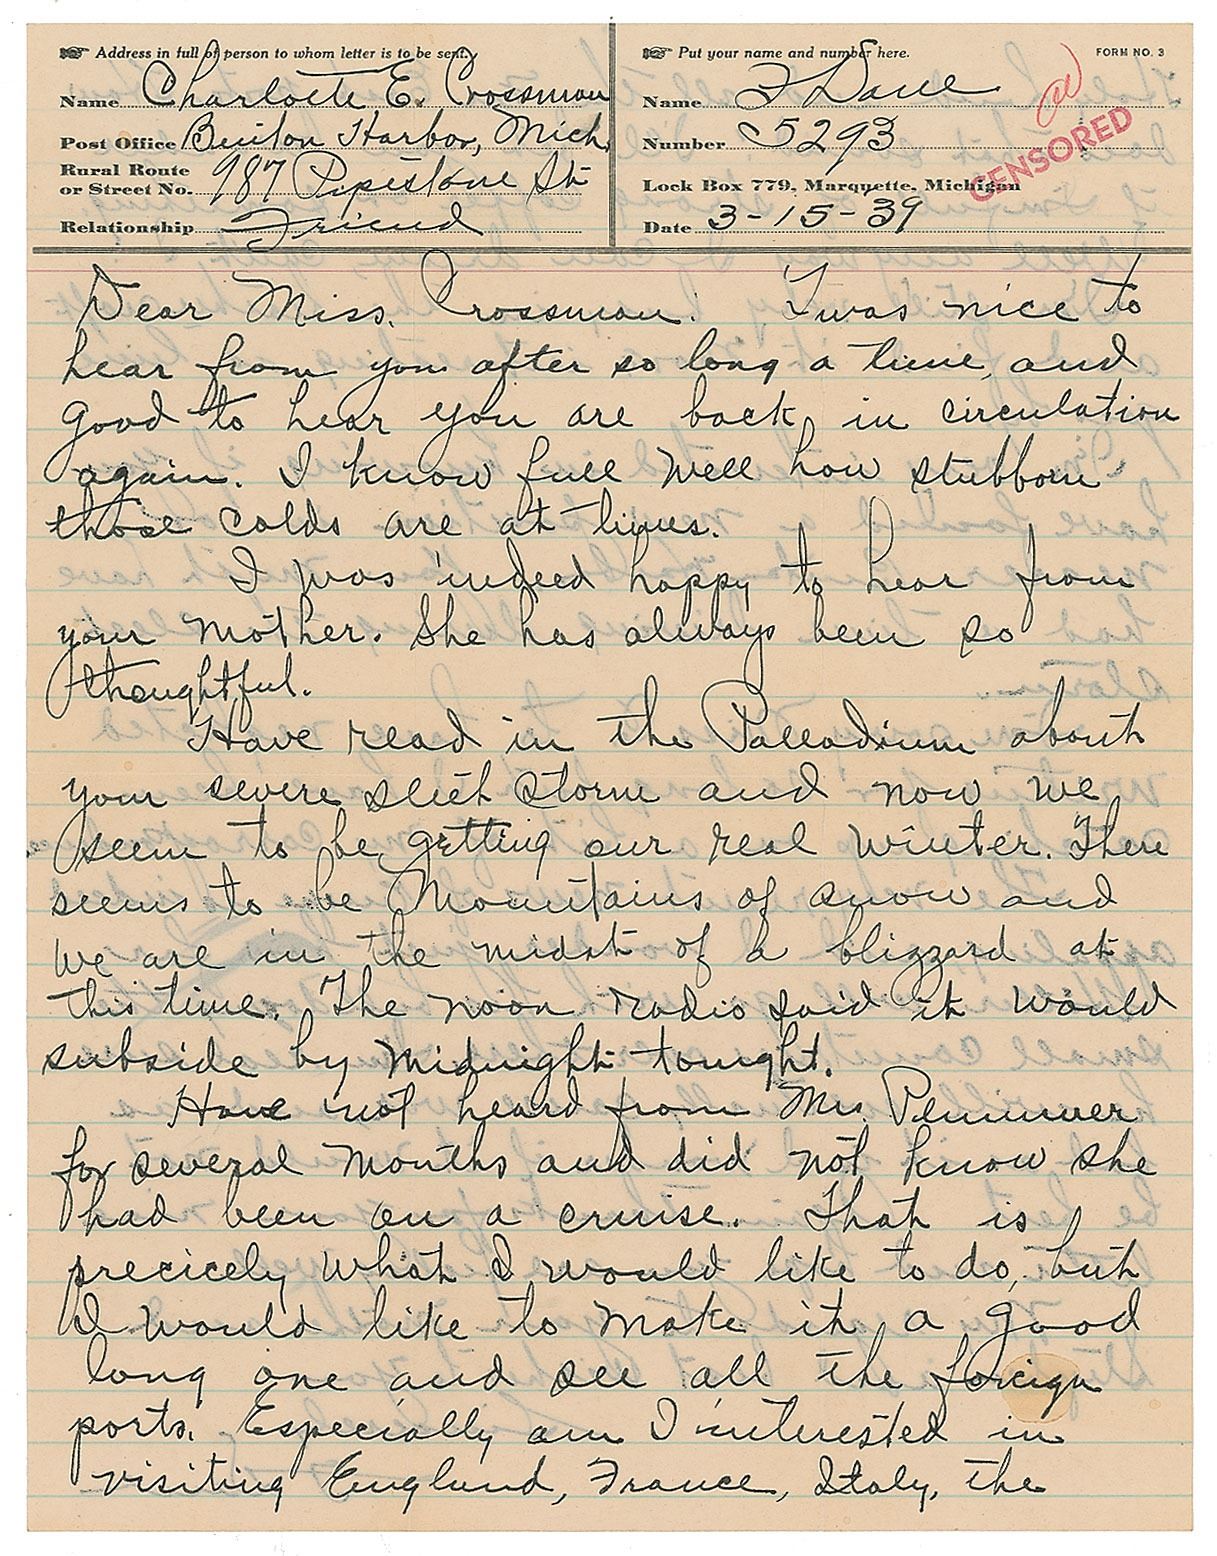 ☞ Address in full of person to whom letter is to be sent.
Name Charlotte E. Crossman
Post Office Benton Harbor, Mich.
Rural Route
or Street No. 987 Pipestone St
Relationship Friend
☞ Put your name and number here. FORM NO. 3
Name F Dane
Number 5293
Lock Box 779, Marquette, Michigan
Date 3-15-39
CENSORED
Dear Miss. Crossman: Twas nice to
hear from you after so long a time, and
good to hear you are back in circulation
again. I know full well how stubborn
those colds are at times.
I was indeed happy to hear from
your mother. She has always been so
thoughtful.
Have read in the Palladium about
your severe sleet storm and now we
seem to be getting our real winter. There
seems to be mountains of snow and
we are in the midst of a blizzard at
this time. The noon radio said it would
subside by midnight tonight.
Have not heard from Mrs.
for several months and did not know she
had been on a cruise. That is
precicely what I would like to do, but
I would like to make it a good
long one and see all the foreign
ports. Especially am I interested in
visiting England, France, Italy, the